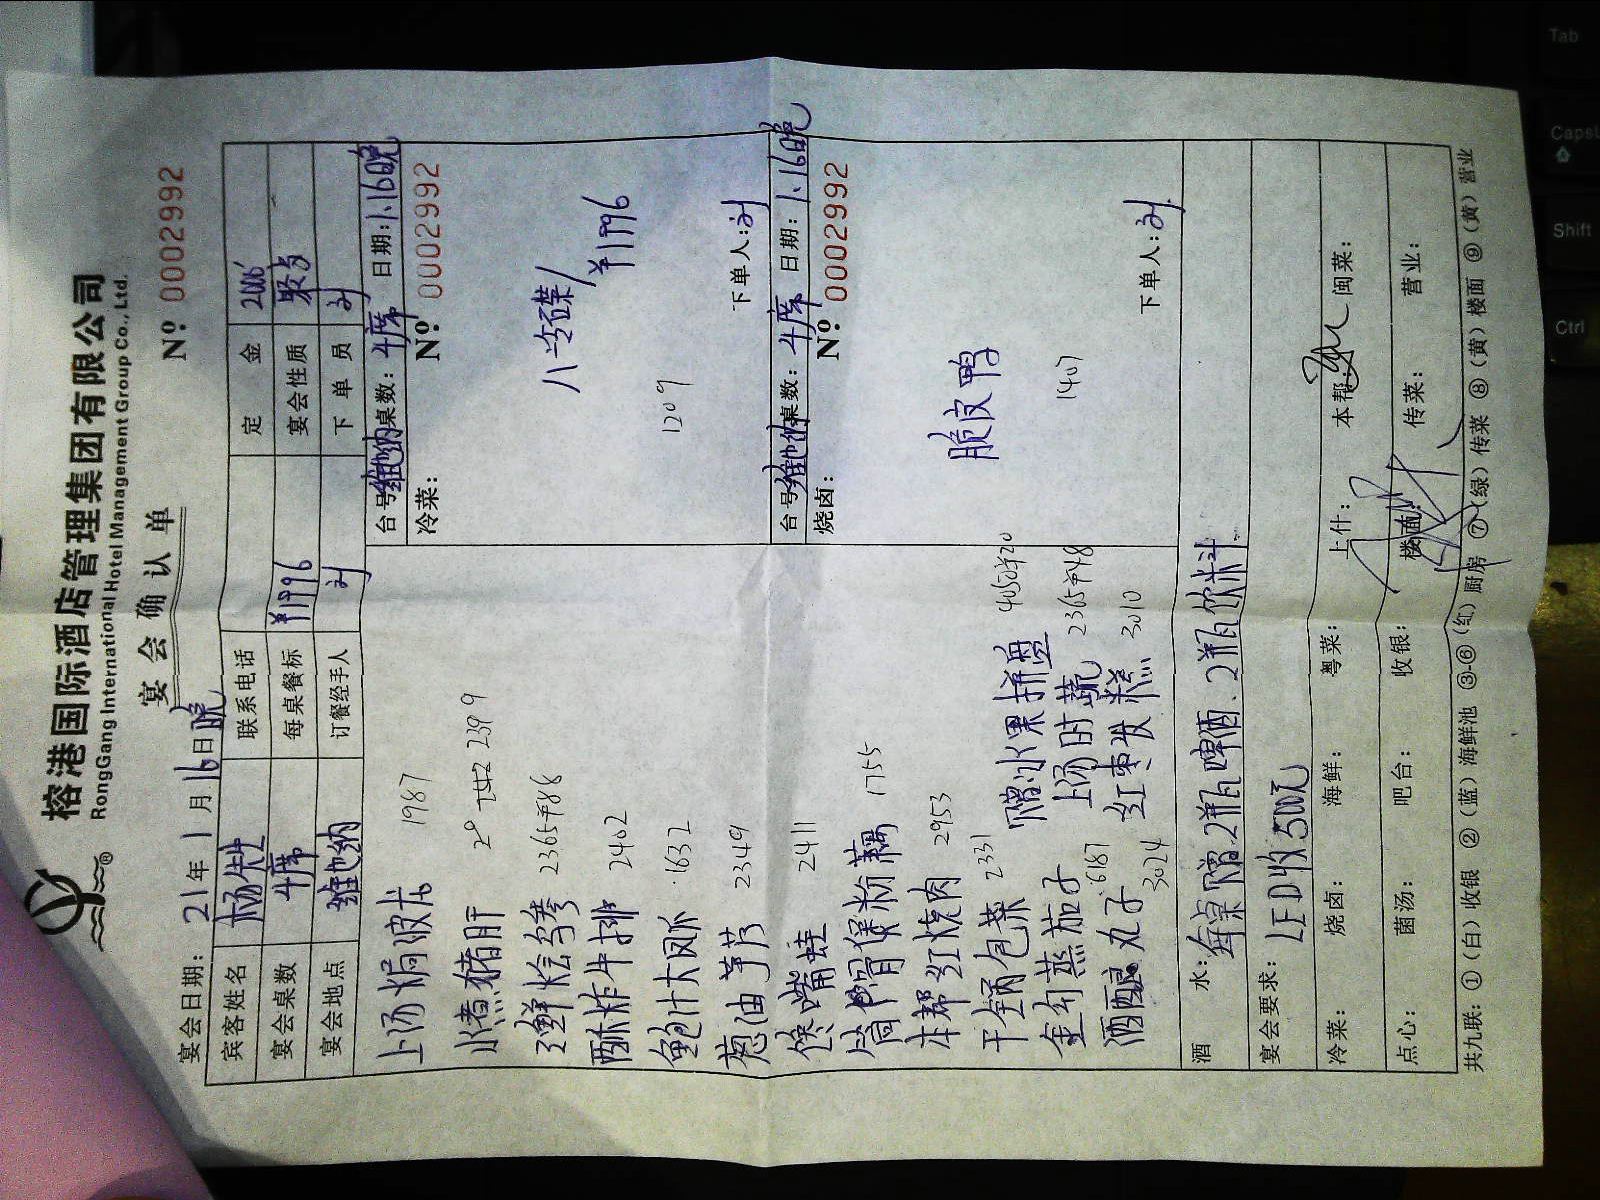 榕港国际酒店管理集团有限公司
RongGang International Hotel Management Group Co., Ltd.
宴会确认单
宴会日期: 21年1月16日晚
№ 0002992
宾客姓名 杨先生 联系电话 定金 2000
宴会桌数 4席 每桌餐标 ¥1996 宴会性质
宴会地点 维也纳 订餐经手人 刘 下单员 刘
上汤焗波龙 1987
水煮猪肝
三鲜烩鱼参
酥炸牛排 2402
鲍汁大凤爪 1632
葱油芋艿 2349
馋嘴蛙 2411
筒骨煲粉藕 1755
本帮红烧肉 2953
干锅包菜 2331
金勾蒸茄子 6187
酒酿丸子 3024
赠水果拼盘
上汤时蔬
红枣发糕 3010
台号: 维也纳 桌数: 4席 日期: 1.16晚
冷菜: № 0002992
八冷碟/
¥1996
1209
下单人: 刘
台号: 维也纳 桌数: 4席 日期: 1.16晚
烧卤: № 0002992
脆皮鸭
1407
下单人: 刘
酒水: 每桌赠2瓶啤酒、2瓶饮料
宴会要求: LED收500元
冷菜: 烧卤: 海鲜: 粤菜: 上什: 本帮: 闽菜:
点心: 菌汤: 吧台: 收银: 楼面: 传菜: 营业:
共九联: ①(白)收银 ②(蓝)海鲜池 ③-⑥(红)厨房 ⑦(绿)传菜 ⑧(黄)楼面 ⑨(黄)营业
Tab
Caps
Shift
Ctrl